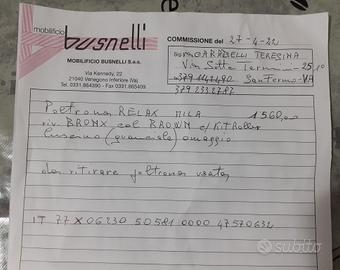 mobilificio
busnelli
MOBILIFICIO BUSNELLI S.a.s.
Via Kennedy, 22
21040 Venegono Inferiore (Va)
Tel. 0331.864390 - Fax 0331.865409
COMMISSIONE del 27-4-22
GARABELLI TERESINA
Via Sotto
San Fermo - VA
Poltrona RELAX MILA 1560,00
riv. BRONX col BROWN c/KIT Roller
cuscino (guanciale) omaggio
da ritirare poltrona usata
IT 77 X 06230 50581 0000 47570632
subito